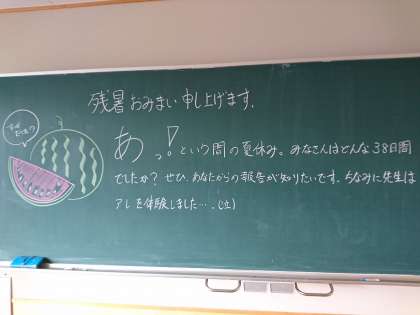 残暑おみまい申し上げます。
あっ!という間の夏休み。みなさんはどんな38日間
でしたか?ぜひ、あなたからの報告が知りたいです。ちなみに先生は
アレを体験しました…。(土)